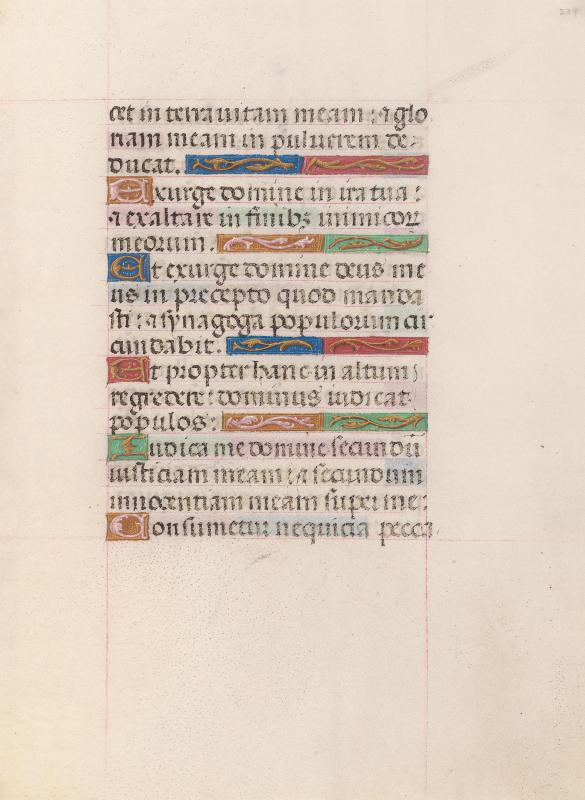 cet in terra uitam meam : ⁊ glo
riam meam in puluerem de
ducat.
Exurge domine in ira tua :
⁊ exaltare in finibꝫ inimicoꝝ
meorum.
Et exurge domine deus me
us in precepto quod manda
sti : ⁊ synagoga populorum cir
cundabit.
Et propter hanc in altum
regredere : dominus iudicat
populos :
Iudica me domine secundū
iusticiam meam : ⁊ secundum
innocentiam meam super me :
Consumetur nequicia pecca
239